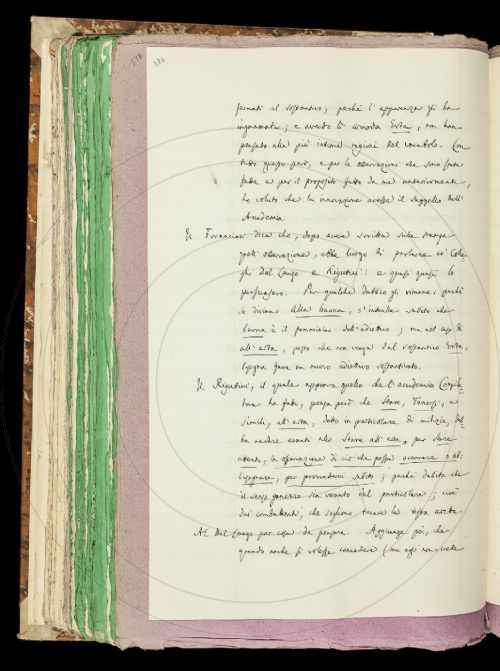 378 382
fermati al sostantivo; perchè l'apparenza gli ha
ingannati; e avendo lì comoda Erta, non han
pensato alle più intime ragioni del vocabolo. Con
tutto questo però, e per le osservazioni che sono state
fatte e per il proposito fatto da me anteriormente,
ho voluto che la innovazione avesse il suggello dell'
Accademia.
Il Fornaciari dice che, dopo avere scritta sulle stampe
questa osservazione, ebbe luogo di parlarne co' Colle
ghi Del Lungo e Rigutini: e quasi quasi lo
persuasero. Pur qualche dubbio gli rimane: perchè
se diciamo Alla buona, s'intende subito che
buona è il femminino dell'adiettivo; ma nel caso di
all'erta, posto che non venga dal sostantivo Erta,
bisogna fare un nuovo adiettivo sostantivato.
Il Rigutini, il quale approva quello che l'accademico Compila
tore ha fatto, pensa però che Stare, Tenersi, e
simili, all'erta, detto in particolare di milizie, deb
ba andare avanti allo Stare all'erta, per Stare
attento, in aspettazione di ciò che possa occorrere o ab
bisognare, per provvedervi subito; perchè dubita che
il senso generico sia venuto dal particolare; cioè
dai combattenti, che sogliono tenere la testa eretta.
Al Del Lungo par cosa da pensare. Aggiunge poi, che
quando anche si volesse concedere (ma egli non crede